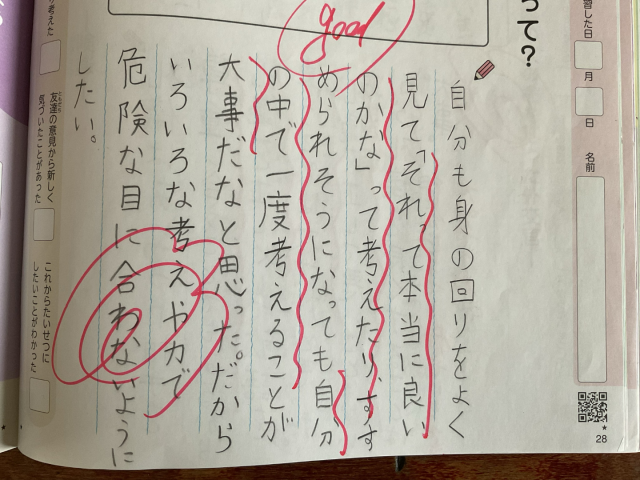 good
って?
自分も身の回りをよく
見て「それって本当に良い
のかな」って考えたり、すす
められそうになっても自分
の中で一度考えることが
大事だなと思った。だから
いろいろな考えや力で
危険な目に合わないように
したい。
習した日
月
日
名前
考えた
友達の意見から新しく
気づいたことがあった
これからたいせつに
したいことがわかった
28